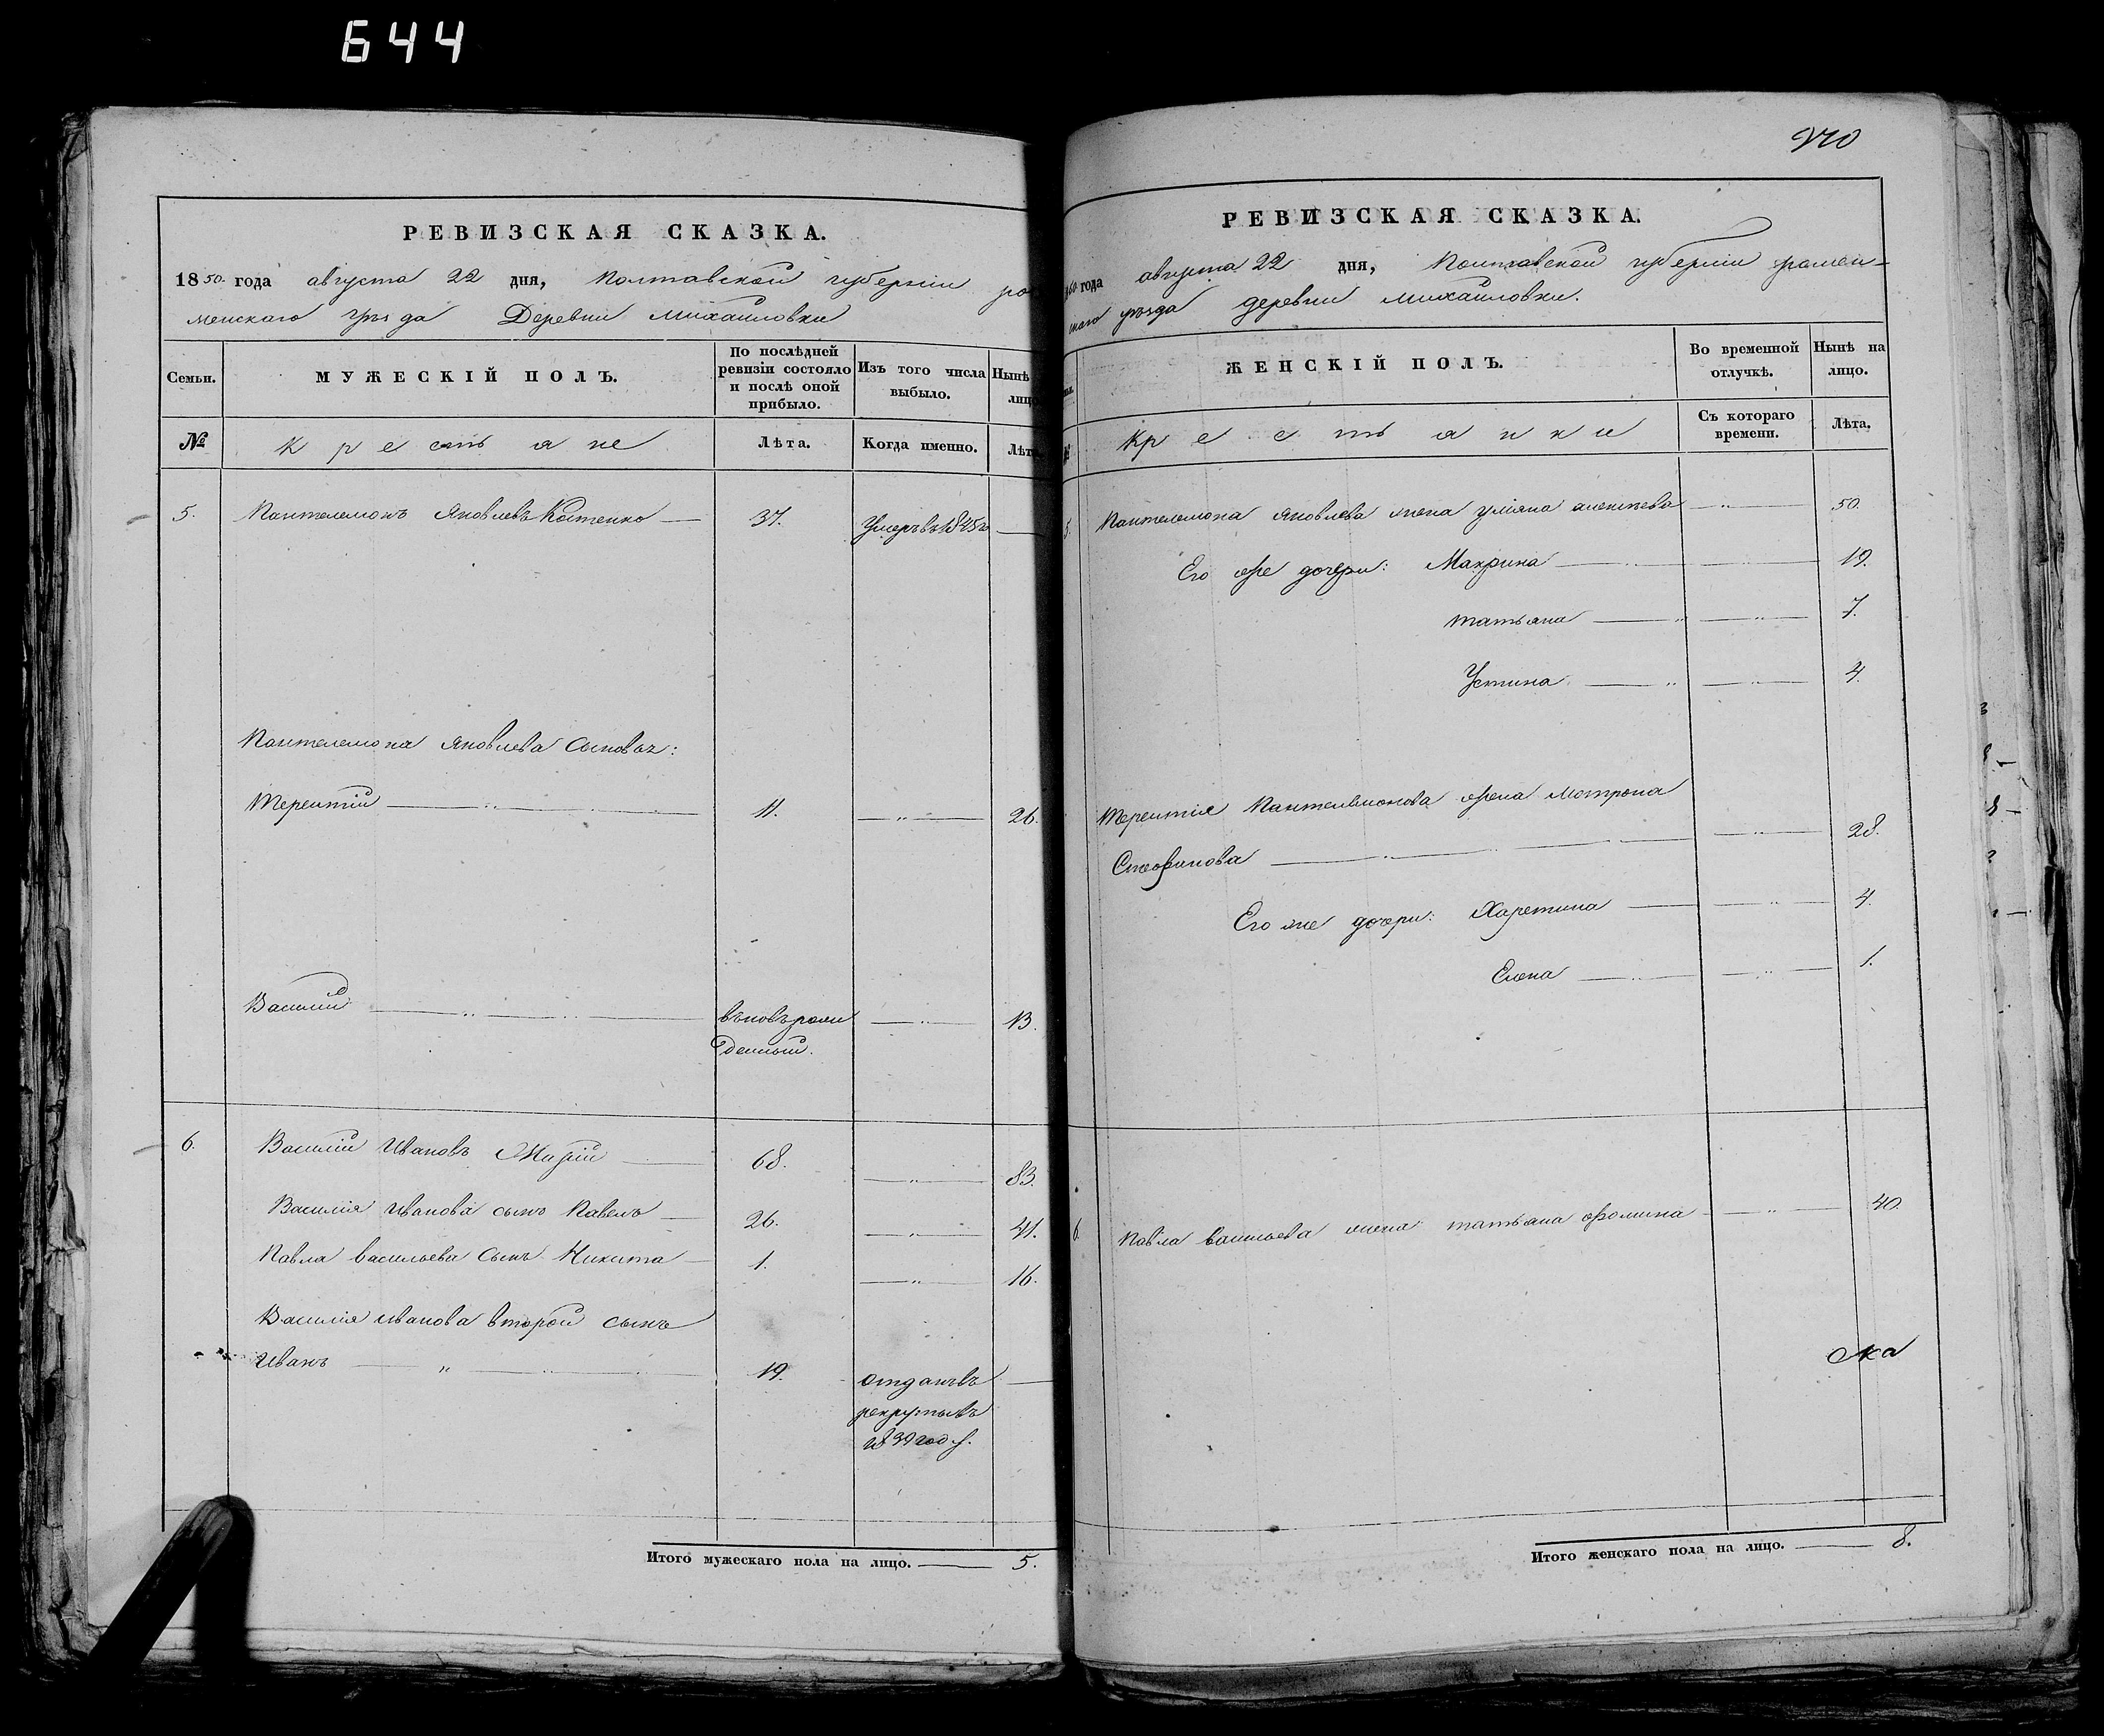 644
РЕВИЗСКАЯ СКАЗКА.
1850. года августа 22 дня, Полтавской губерніи ро
менскаго уѣзда Деревни Михайловки
Семьи.
МУЖЕСКІЙ ПОЛЪ.
По послѣдней ревизіи состояло и послѣ оной прибыло.
Изъ того числа выбыло.
Нынѣ лицо
№
Крестьяне
Лѣта.
Когда именно.
Лѣт
5. Пантелемонъ Яковлевъ Костенко — 37. Умеръ въ 1845 г —
Пантелемона Яковлева Сыновья:
Терентій — 11. — 26.
Василій — въновь рож — 13.
денный.
6. Василій Ивановъ — 68. — 83.
Василія Иванова сынъ Павелъ — 26. — 41.
Павла васильева Сынъ Никита — 1. — 16.
Василія иванова второй сынъ
Иванъ — 19. отданъ въ —
рекруты въ
1839 году.
Итого мужескаго пола на лицо. — 5.
270
РЕВИЗСКАЯ СКАЗКА.
года августа 22 дня, Полтавской губерніи ромен-
скаго уѣзда деревни михайловки.
ЖЕНСКІЙ ПОЛЪ.
Во временной отлучкѣ.
Нынѣ на лицо.
№
Крестьянки
Съ котораго времени.
Лѣта.
5. Пантелемона Яковлева жена Уліяна алексѣева — 50.
Его же дочери: Макрина — 19.
татьяна — 7.
Устина — 4.
Терентія Пантелемонова жена Мотрона
Стефанова — 28.
Его же дочери: Харетина — 4.
Елена — 1.
6. Павла васильева жена татьяна фомина — 40.
Итого женскаго пола на лицо. — 8.